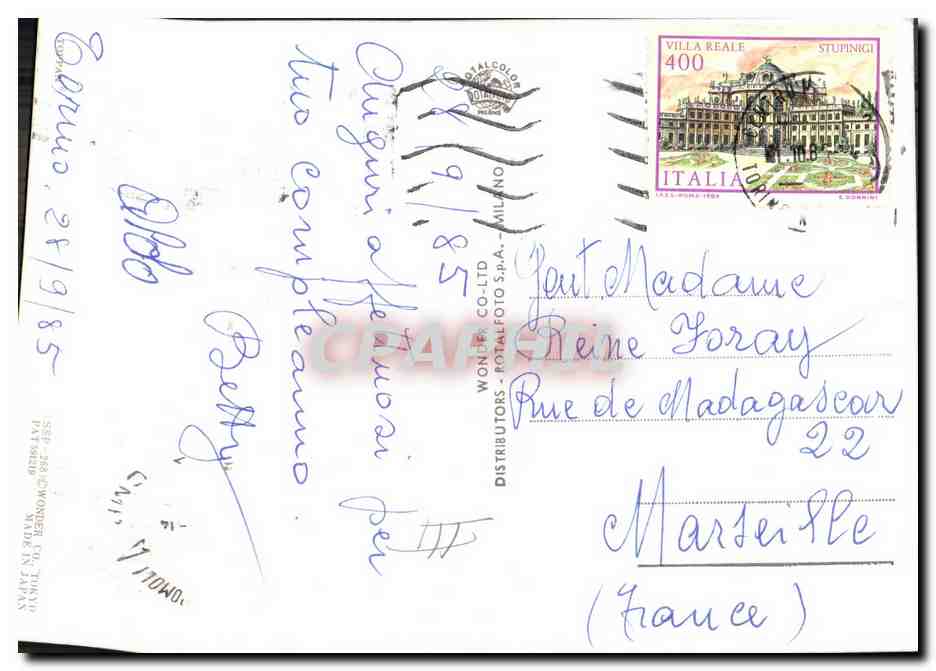 Torino, 28/9/85
28/9/85
Auguri affettuosi per
tuo compleanno.
Betty
Aldo
Gent Madame
Reine Foray
Rue de Madagascar
22
Marseille
(France)
VILLA REALE STUPINIGI
400
ITALIA
I.P.Z.S.-ROMA-1984 E. DONNINI
ROTALCOLOR
MILANO
WONDER CO-LTD
DISTRIBUTORS - ROTALFOTO S.p.A. - MILANO
SSP-268 ©WONDER CO., TOKYO
PAT 591219 MADE IN JAPAN